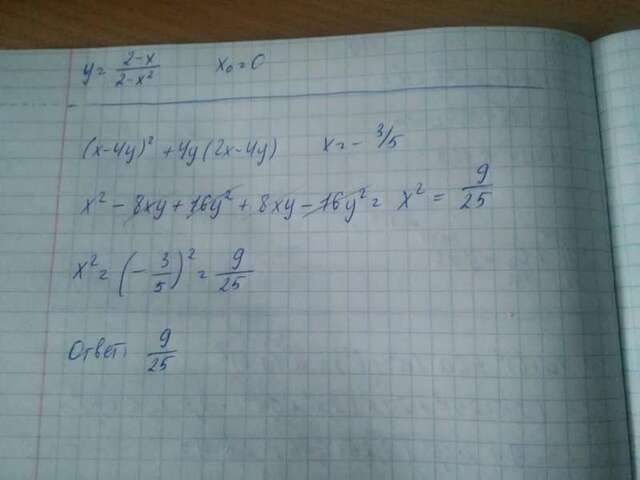 y = 2-x / 2-x² x₀ = 0
(x-4y)² + 4y(2x-4y) x = - 3/5
x² - 8xy + 16y² + 8xy - 16y² = x² = 9/25
x² = (- 3/5)² = 9/25
Ответ: 9/25